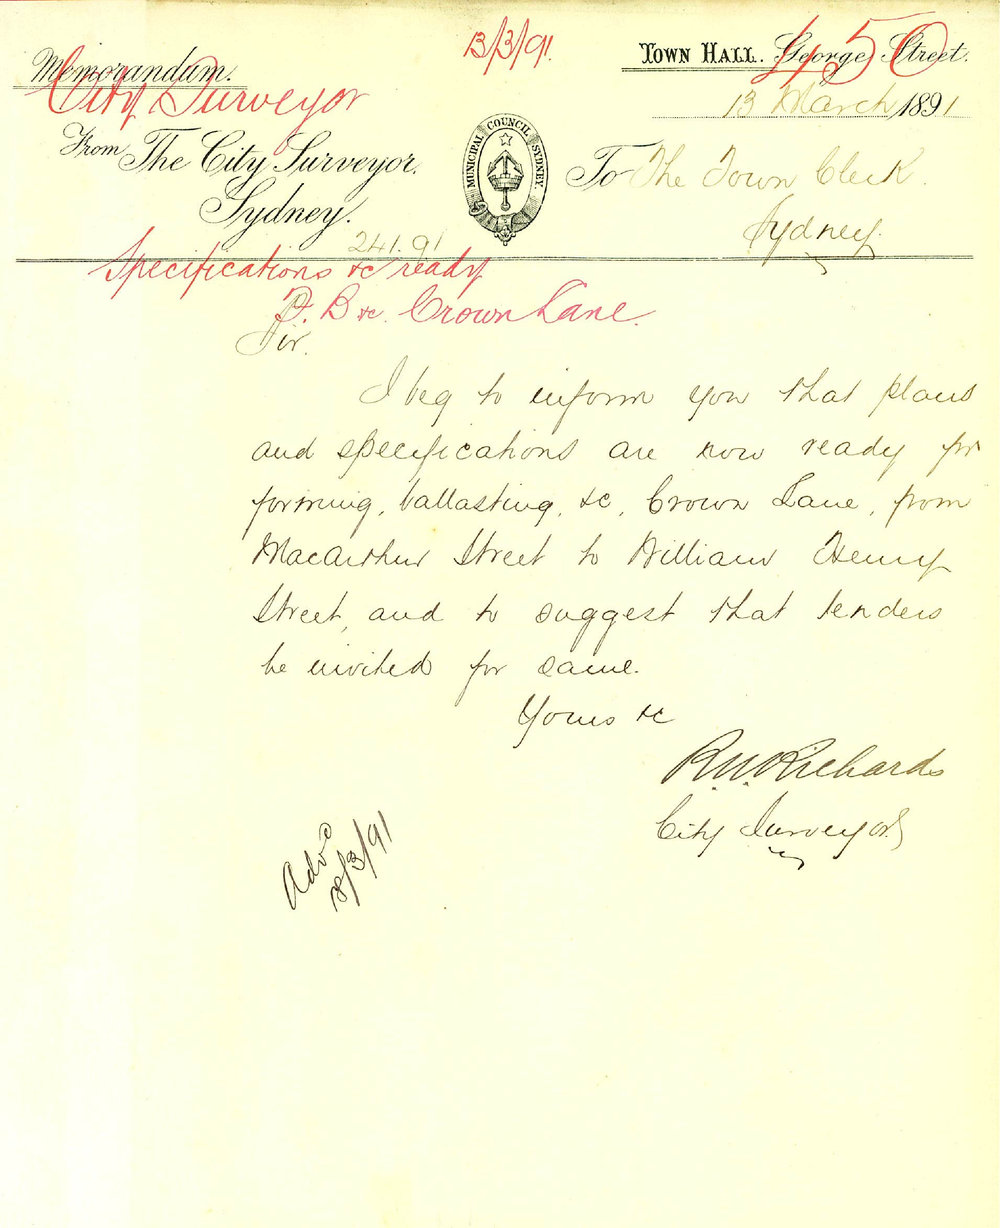 13/3/91.
Town Hall. George Street.
450
Memorandum.
City Surveyor
13 March 1891
From The City Surveyor.
Sydney.
MUNICIPAL COUNCIL SYDNEY.
To The Town Clerk.
Sydney.
241.91
Specifications &c ready
F. B &c. Crown Lane.
Sir.
I beg to inform you that plans
and specifications are now ready for
forming, ballasting, &c, Crown Lane, from
Macarthur Street to William Henry
Street, and to suggest that tenders
be invited for same.
Yours &c
R.W. Richards
City Surveyor
Adv
/3/91